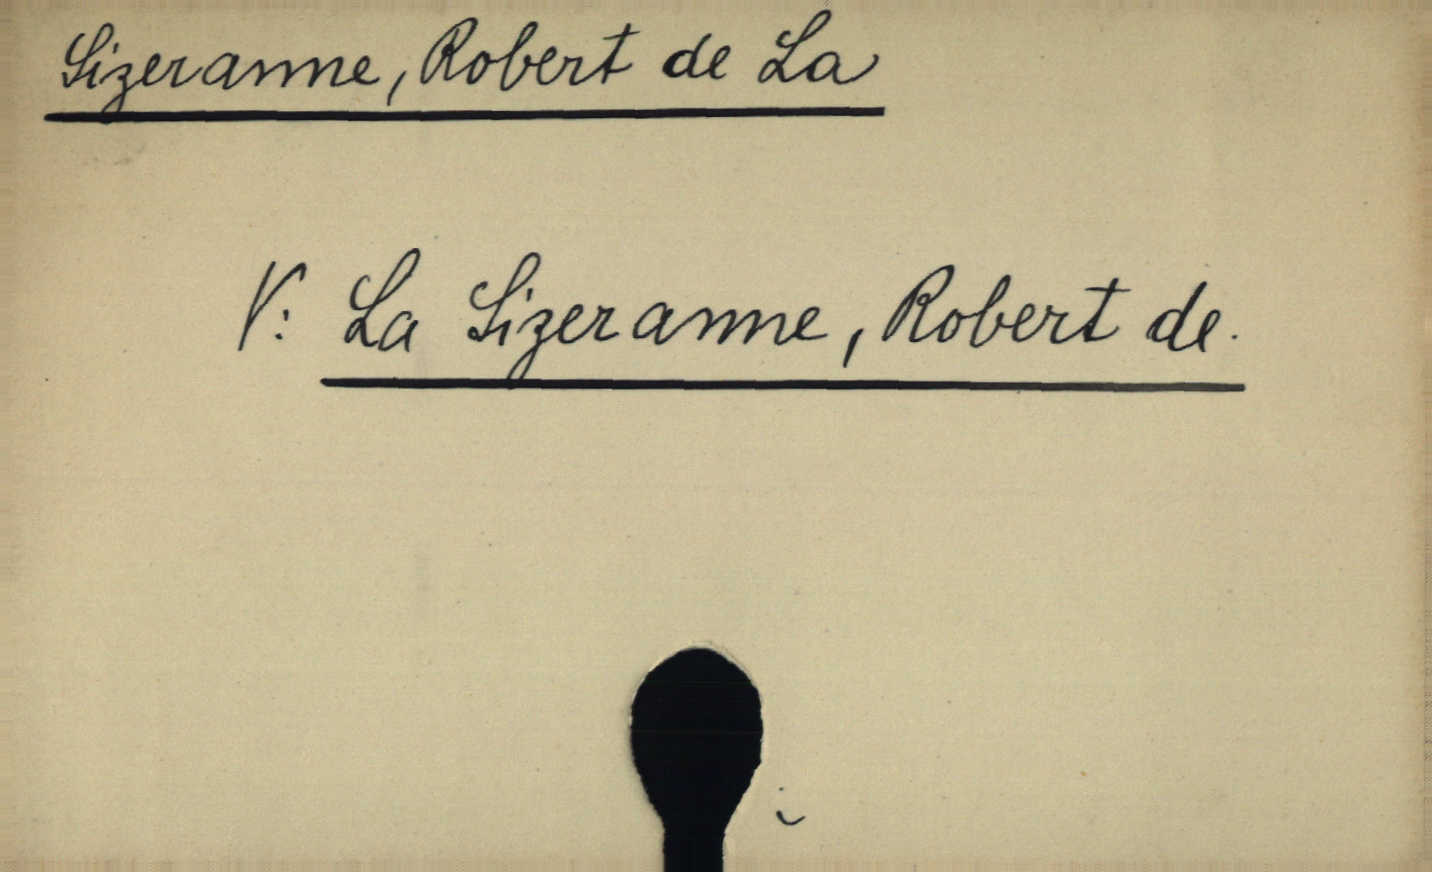 Sizeranne, Robert de La
V: La Sizeranne, Robert de.